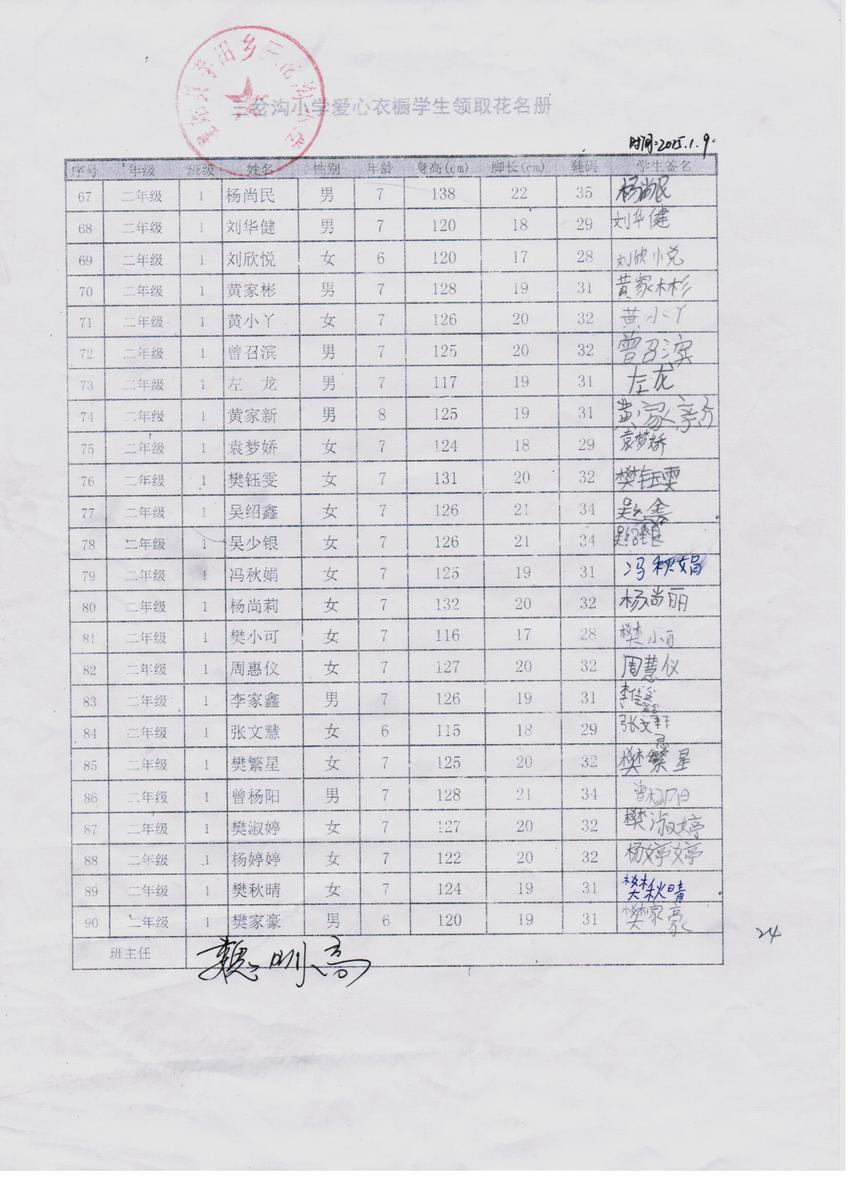 三岔沟小学爱心衣橱学生领取花名册
时间:2015.1.9.
序号 年级 班级 姓名 性别 年龄 身高(cm) 脚长(cm) 鞋码 学生签名
67 二年级 1 杨尚民 男 7 138 22 35 杨尚民
68 二年级 1 刘华健 男 7 120 18 29 刘华健
69 二年级 1 刘欣悦 女 6 120 17 28 刘欣小兑
70 二年级 1 黄家彬 男 7 128 19 31 黄家彬
71 二年级 1 黄小丫 女 7 126 20 32 黄小丫
72 二年级 1 曾召滨 男 7 125 20 32 曾召滨
73 二年级 1 左 龙 男 7 117 19 31 左龙
74 二年级 1 黄家新 男 8 125 19 31 黄家新
75 二年级 1 袁梦娇 女 7 124 18 29 袁梦娇
76 二年级 1 樊钰雯 女 7 131 20 32 樊钰雯
77 二年级 1 吴绍鑫 女 7 126 21 34
78 二年级 1 吴少银 女 7 126 21 34
79 二年级 1 冯秋娟 女 7 125 19 31 冯秋娟
80 二年级 1 杨尚莉 女 7 132 20 32 杨尚
81 二年级 1 樊小可 女 7 116 17 28 樊小可
82 二年级 1 周惠仪 女 7 127 20 32 周慧仪
83 二年级 1 李家鑫 男 7 126 19 31
84 二年级 1 张文慧 女 6 115 18 29 张文慧
85 二年级 1 樊繁星 女 7 125 20 32 樊繁星
86 二年级 1 曾杨阳 男 7 128 21 34 曾杨阳
87 二年级 1 樊淑婷 女 7 127 20 32 樊淑婷
88 二年级 1 杨婷婷 女 7 122 20 32 杨婷婷
89 二年级 1 樊秋晴 女 7 124 19 31 樊秋晴
90 二年级 1 樊家豪 男 6 120 19 31 樊家豪
24
班主任